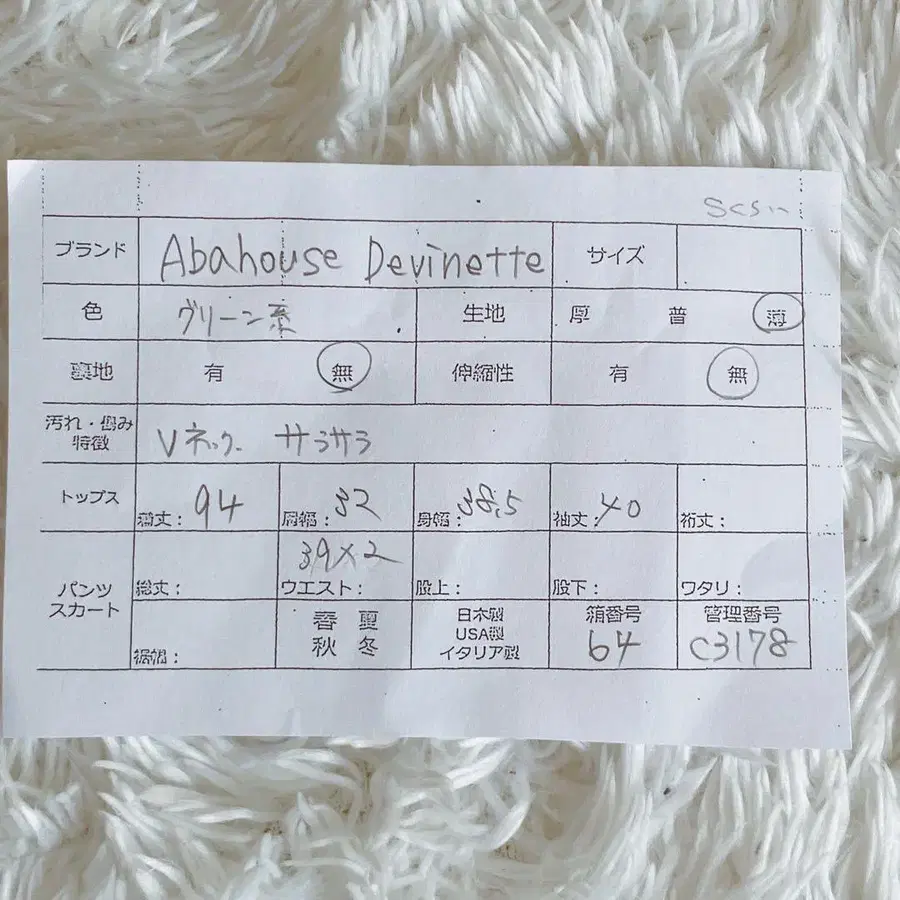 ブランド Abahouse Devinette サイズ
色 グリーン系 生地 厚 普 薄
裏地 有 無 伸縮性 有 無
汚れ・傷み
特徴 Vネック サラサラ
トップス 着丈: 94 肩幅: 32 身幅: 38.5 袖丈: 40 裄丈:
パンツ
スカート 総丈: ウエスト: 39×2 股上: 股下: ワタリ:
裾幅: 春 夏
秋 冬
日本製
USA製
イタリア製
箱番号
64
管理番号
C3178